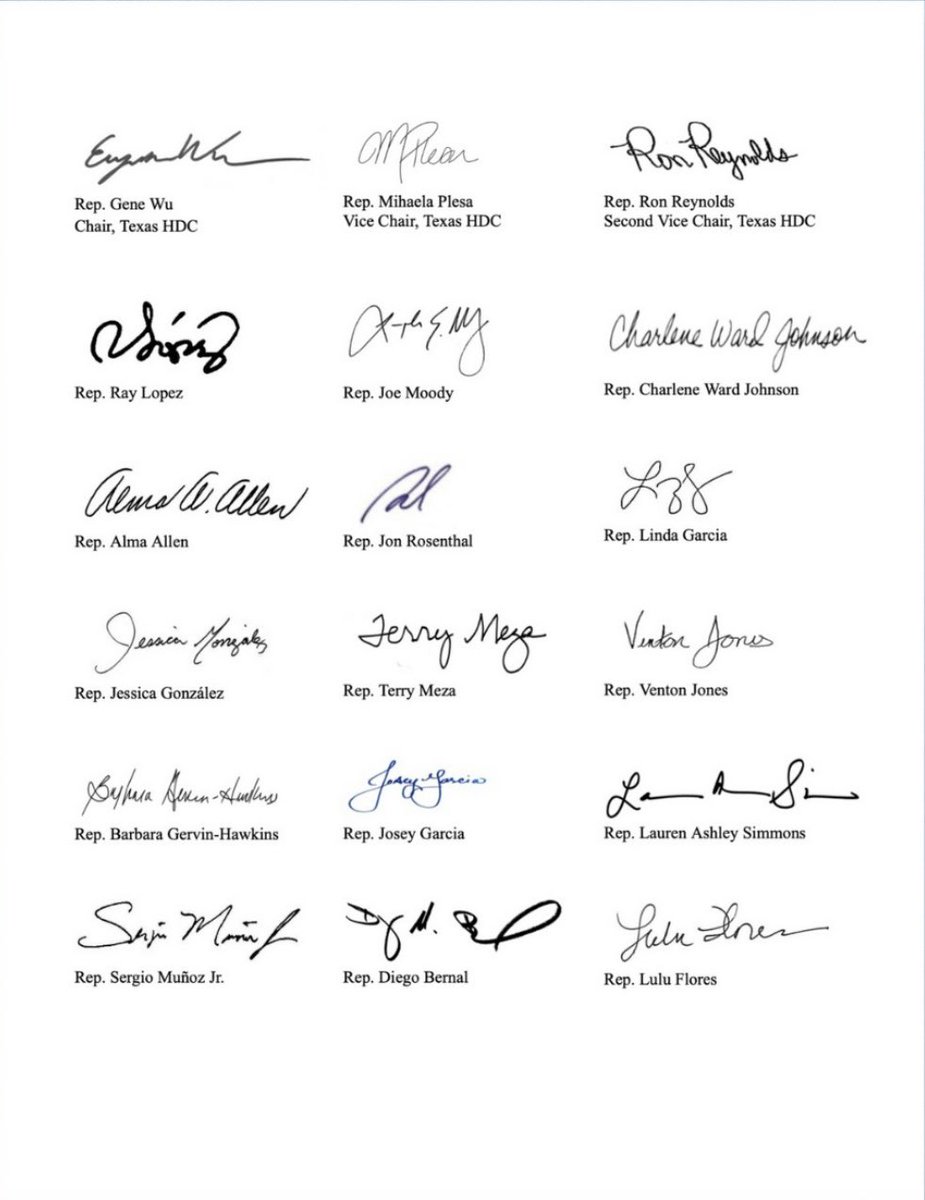 Eugene Wu
M Plesa
Ron Reynolds
Rep. Gene Wu
Chair, Texas HDC
Rep. Mihaela Plesa
Vice Chair, Texas HDC
Rep. Ron Reynolds
Second Vice Chair, Texas HDC
López
Charlene Ward Johnson
Rep. Ray Lopez
Rep. Joe Moody
Rep. Charlene Ward Johnson
Alma A. Allen
Rep. Alma Allen
Rep. Jon Rosenthal
Rep. Linda Garcia
Jessica González
Terry Meza
Venton Jones
Rep. Jessica González
Rep. Terry Meza
Rep. Venton Jones
Barbara Gervin-Hawkins
Josey Garcia
Rep. Barbara Gervin-Hawkins
Rep. Josey Garcia
Rep. Lauren Ashley Simmons
Sergio Muñoz Jr
Lulu Flores
Rep. Sergio Muñoz Jr.
Rep. Diego Bernal
Rep. Lulu Flores